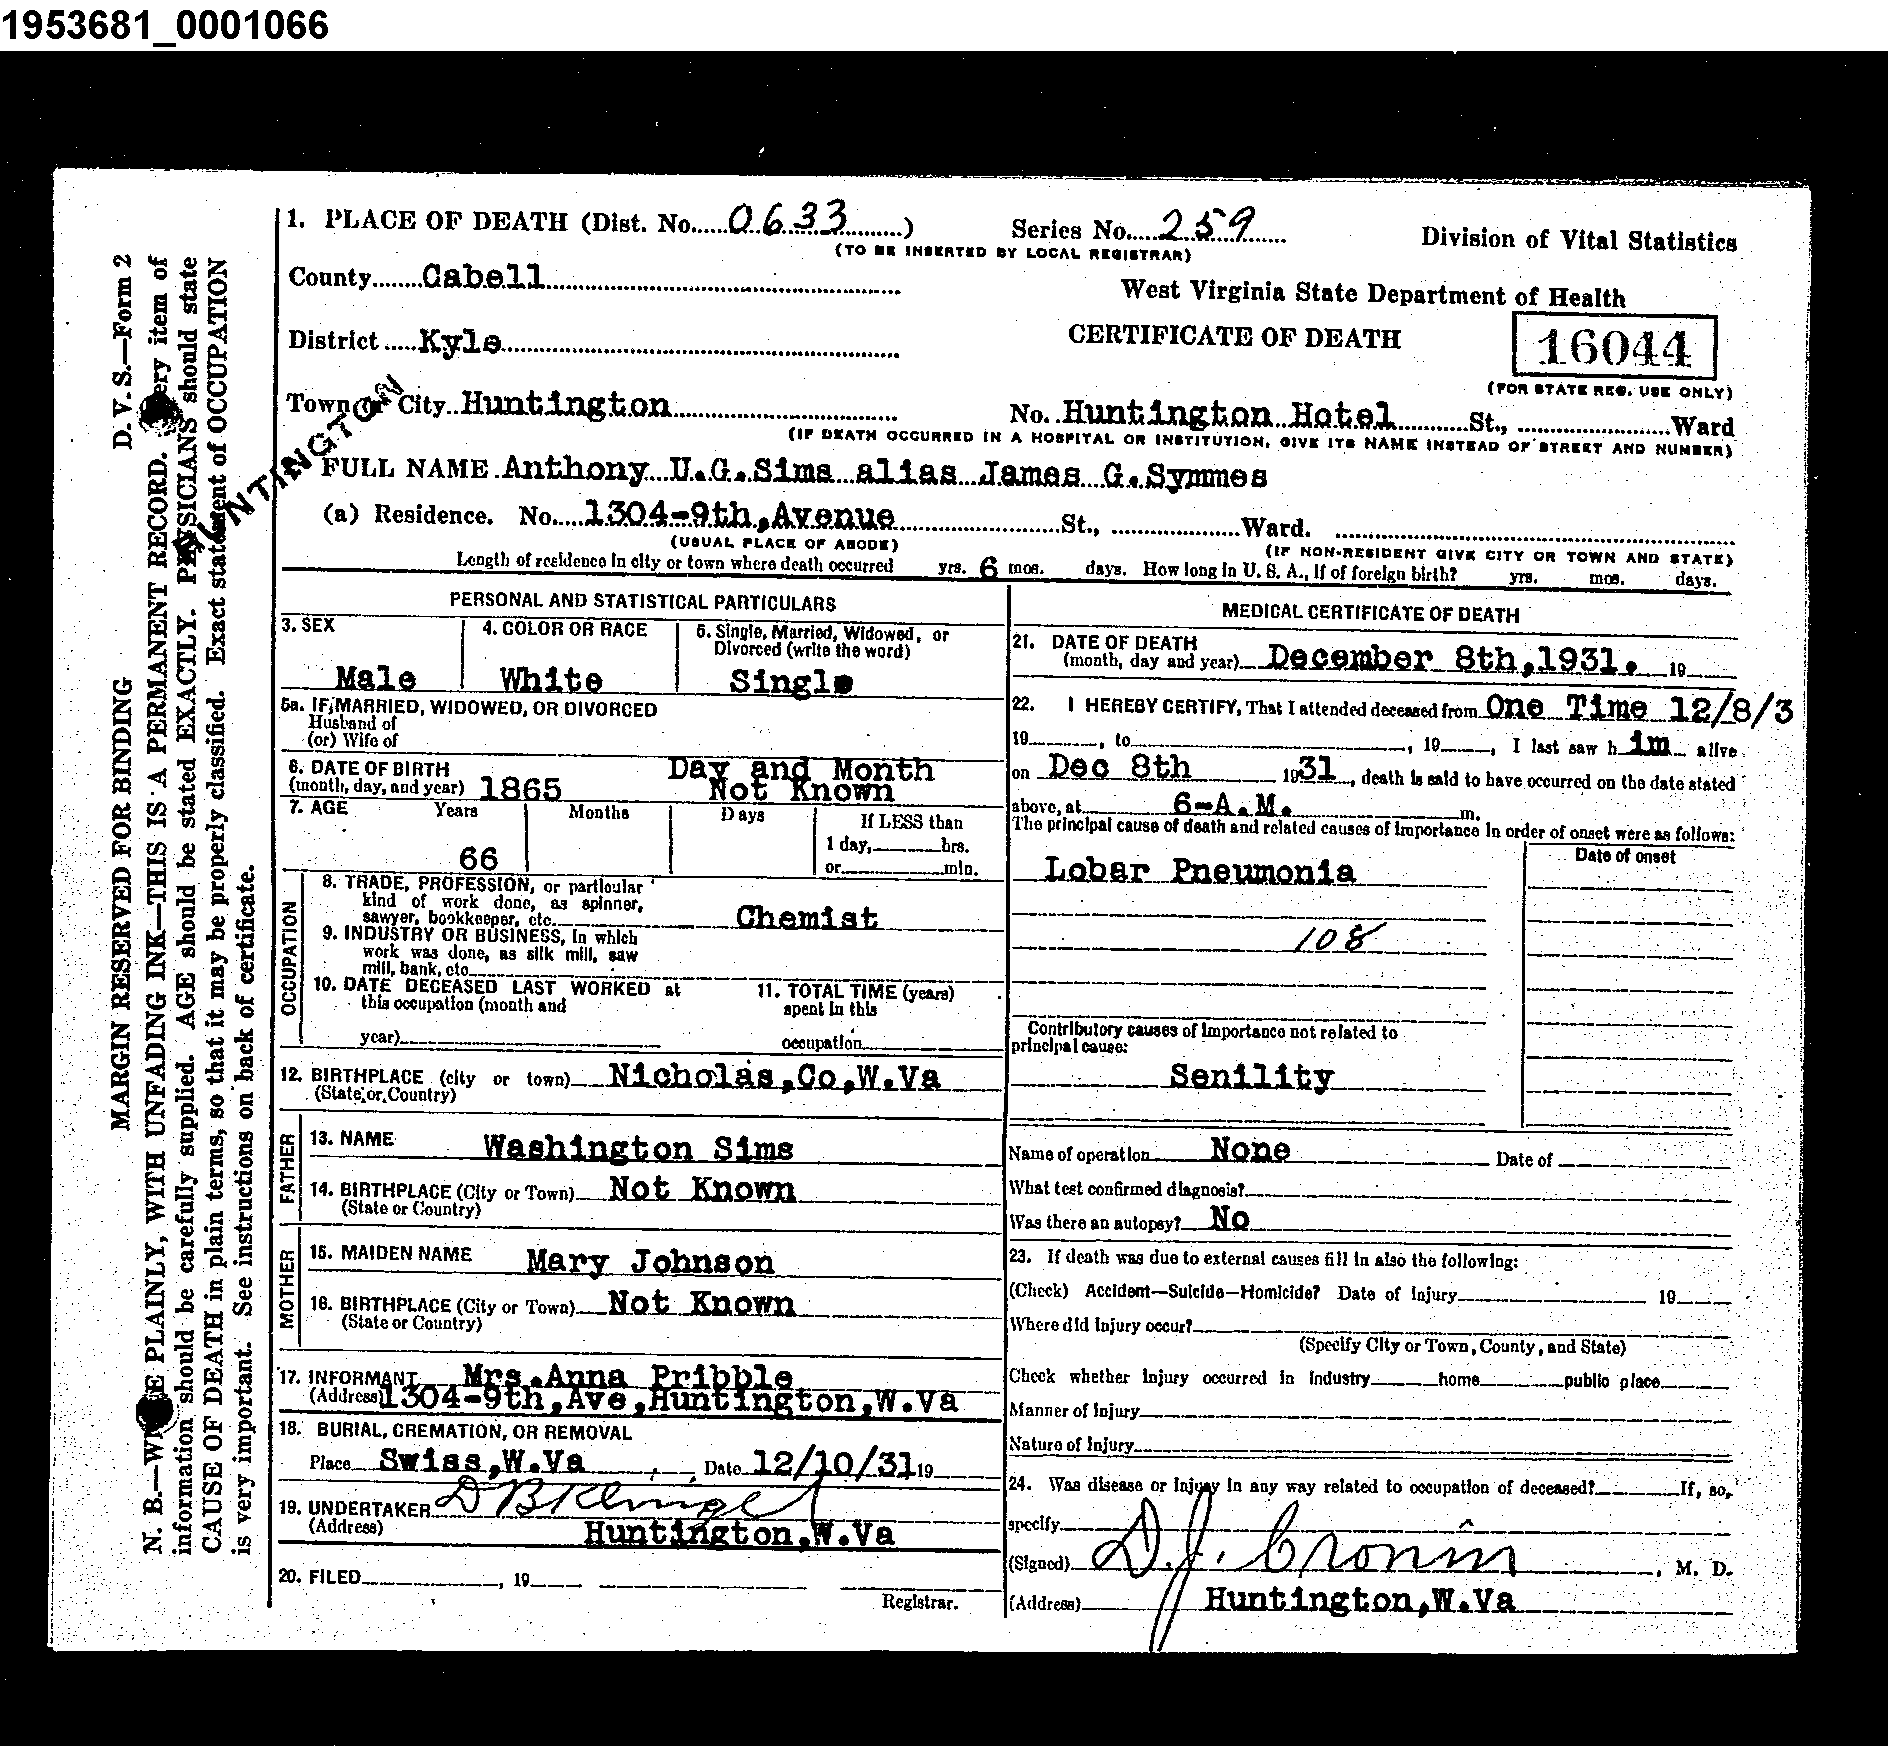 1953681_0001066
1. PLACE OF DEATH (Dist. No. 0633) Series No. 259 Division of Vital Statistics
(TO BE INSERTED BY LOCAL REGISTRAR)
County Cabell West Virginia State Department of Health
District Kyle CERTIFICATE OF DEATH 16044
(FOR STATE REG. USE ONLY)
Town or City Huntington No. Huntington Hotel St., Ward
(IF DEATH OCCURRED IN A HOSPITAL OR INSTITUTION, GIVE ITS NAME INSTEAD OF STREET AND NUMBER)
HUNTINGTON
FULL NAME Anthony U.G.Sims alias James G.Symmes
(a) Residence. No. 1304-9th,Avenue St., Ward.
(USUAL PLACE OF ABODE) (IF NON-RESIDENT GIVE CITY OR TOWN AND STATE)
Length of residence in city or town where death occurred yrs. 6 mos. days. How long in U. S. A., if of foreign birth? yrs. mos. days.
PERSONAL AND STATISTICAL PARTICULARS
3. SEX 4. COLOR OR RACE 5. Single, Married, Widowed, or
Divorced (write the word)
Male White Single
5a. IF MARRIED, WIDOWED, OR DIVORCED
Husband of
(or) Wife of
6. DATE OF BIRTH Day and Month
(month, day, and year) 1865 Not Known
7. AGE Years Months Days If LESS than
1 day, hrs.
66 or min.
OCCUPATION
8. TRADE, PROFESSION, or particular
kind of work done, as spinner,
sawyer, bookkeeper, etc. Chemist
9. INDUSTRY OR BUSINESS, in which
work was done, as silk mill, saw
mill, bank, etc
10. DATE DECEASED LAST WORKED at 11. TOTAL TIME (years)
this occupation (month and spent in this
year) occupation
12. BIRTHPLACE (city or town) Nicholas,Co,W.Va
(State or Country)
FATHER
13. NAME Washington Sims
14. BIRTHPLACE (City or Town) Not Known
(State or Country)
MOTHER
15. MAIDEN NAME Mary Johnson
16. BIRTHPLACE (City or Town) Not Known
(State or Country)
17. INFORMANT Mrs.Anna Pribble
(Address) 1304-9th,Ave,Huntington,W.Va
18. BURIAL, CREMATION, OR REMOVAL
Place Swiss,W.Va , Date 12/10/31 19
19. UNDERTAKER
(Address) Huntington,W.Va
20. FILED , 19
Registrar.
MEDICAL CERTIFICATE OF DEATH
21. DATE OF DEATH
(month, day and year) December 8th,1931. 19
22. I HEREBY CERTIFY, That I attended deceased from One Time 12/8/3
19 , to , 19 , I last saw h im alive
on Dec 8th 1931, death is said to have occurred on the date stated
above, at 6-A.M. m.
The principal cause of death and related causes of importance in order of onset were as follows:
Date of onset
Lobar Pneumonia
108
Contributory causes of importance not related to
principal cause:
Senility
Name of operation None Date of
What test confirmed diagnosis?
Was there an autopsy? No
23. If death was due to external causes fill in also the following:
(Check) Accident—Suicide—Homicide? Date of Injury 19
Where did injury occur?
(Specify City or Town, County, and State)
Check whether injury occurred in industry home public place
Manner of Injury
Nature of Injury
24. Was disease or injury in any way related to occupation of deceased? If, so,
specify
(Signed) D.J. Cronin, M. D.
(Address) Huntington,W.Va
D. V. S.—Form 2
MARGIN RESERVED FOR BINDING
N. B.—WRITE PLAINLY, WITH UNFADING INK—THIS IS A PERMANENT RECORD. Every item of
information should be carefully supplied. AGE should be stated EXACTLY. PHYSICIANS should state
CAUSE OF DEATH in plain terms, so that it may be properly classified. Exact statement of OCCUPATION
is very important. See instructions on back of certificate.